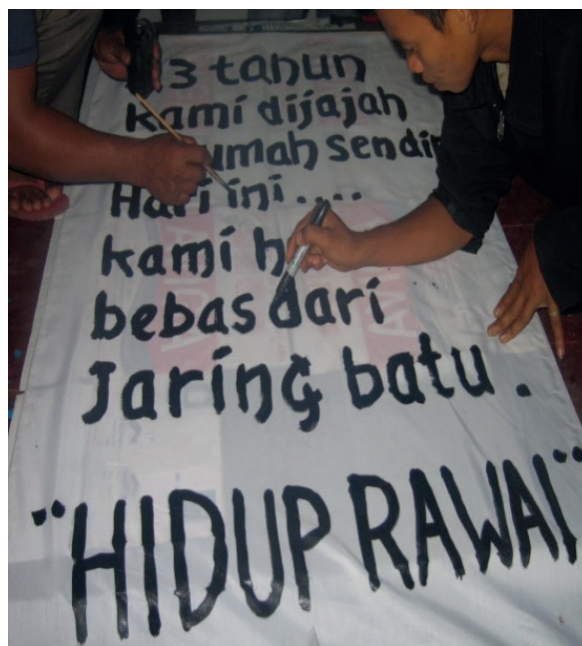 3 tahun
kami dijajah
umah sendir
Hari ini ....
kami h
bebas dari
Jaring batu.
"HIDUP RAWAI"